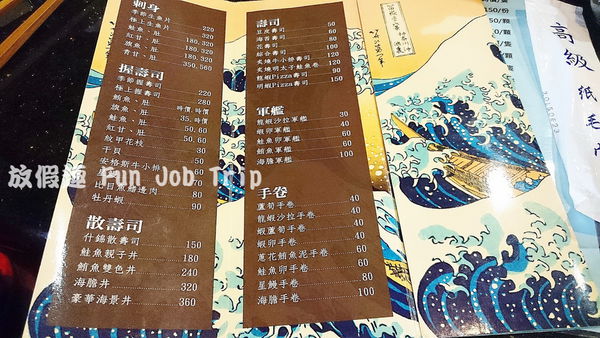 刺身
季節生魚片 220
極上生魚片 320
鮭魚、肚 180,320
旗魚、肚 180,320
青甘、肚 350,560
握壽司
季節握壽司 220
極上握壽司 280
鮪魚、肚 時價,時價
旗魚、肚 35,時價
鮭魚、肚 50,60
紅甘、肚 50,60
軟甲花枝
干貝 50
安格斯牛小排
比目魚鰭邊肉 80
牡丹蝦 90
散壽司
什錦散壽司 150
鮭魚親子丼 180
鮪魚雙色丼 240
海膽丼 320
豪華海景丼 360
壽司
豆皮壽司 50
海苔壽司 60
花壽司 60
綜合壽司 100
炙燒牛小排壽司 120
炙燒明太子鮭魚卷 120
龍蝦Pizza壽司 90
明蝦Pizza壽司 150
軍艦
龍蝦沙拉軍艦 30
蝦卵軍艦 40
鮭魚卵軍艦 60
鮪魚軍艦 60
海膽軍艦 100
手卷
蘆筍手卷 40
龍蝦沙拉手卷 40
蝦蘆筍手卷 40
蝦卵手卷 40
蔥花鮪魚泥手卷 60
鮭魚卵手卷 60
星鰻手卷 80
海膽手卷 100
150/份
50/顆
高級紙毛巾
放假趣 Fun Job Trip